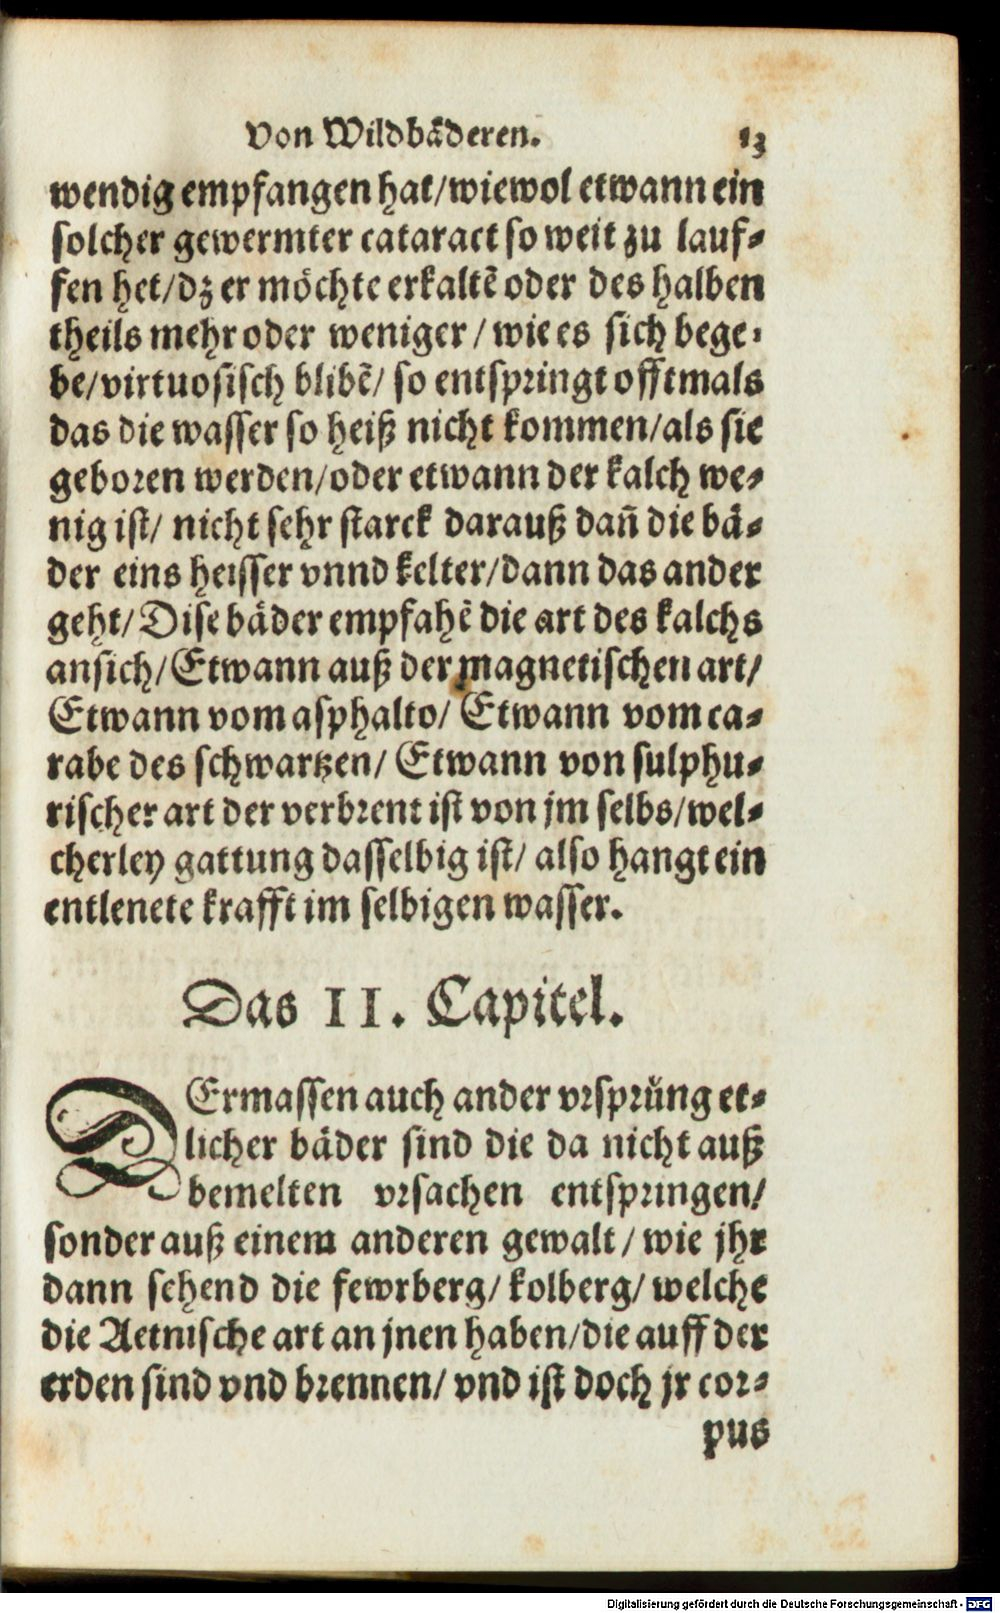 Von Wildbäderen. 13
wendig empfangen hat/wiewol etwann ein
solcher gewermter cataract so weit zu lauf⸗
fen het/dz er möchte erkaltẽ oder des halben
theils mehr oder weniger/ wie es sich bege⸗
be/virtuosisch blibẽ/ so entspringt offtmals
das die wasser so heiß nicht kommen/als sie
geboren werden/oder etwann der kalch we⸗
nig ist/ nicht sehr starck darauß dañ die bä⸗
der eins heisser vnnd kelter/dann das ander
geht/Dise bäder empfahẽ die art des kalchs
ansich/Etwann auß der magnetischen art/
Etwann vom asphalto/ Etwann vom ca⸗
rabe des schwartzen/ Etwann von sulphu⸗
rischer art der verbrent ist von jm selbs/wel⸗
cherley gattung dasselbig ist/ also hangt ein
entlenete krafft im selbigen wasser.
Das II. Capitel.
DErmassen auch ander vrsprüng et⸗
licher bäder sind die da nicht auß
bemelten vrsachen entspringen/
sonder auß einem anderen gewalt/ wie jhr
dann sehend die fewrberg/ kolberg/ welche
die Aetnische art an jnen haben/die auff der
erden sind vnd brennen/ vnd ist doch jr cor⸗
pus
Digitalisierung gefördert durch die Deutsche Forschungsgemeinschaft - DFG